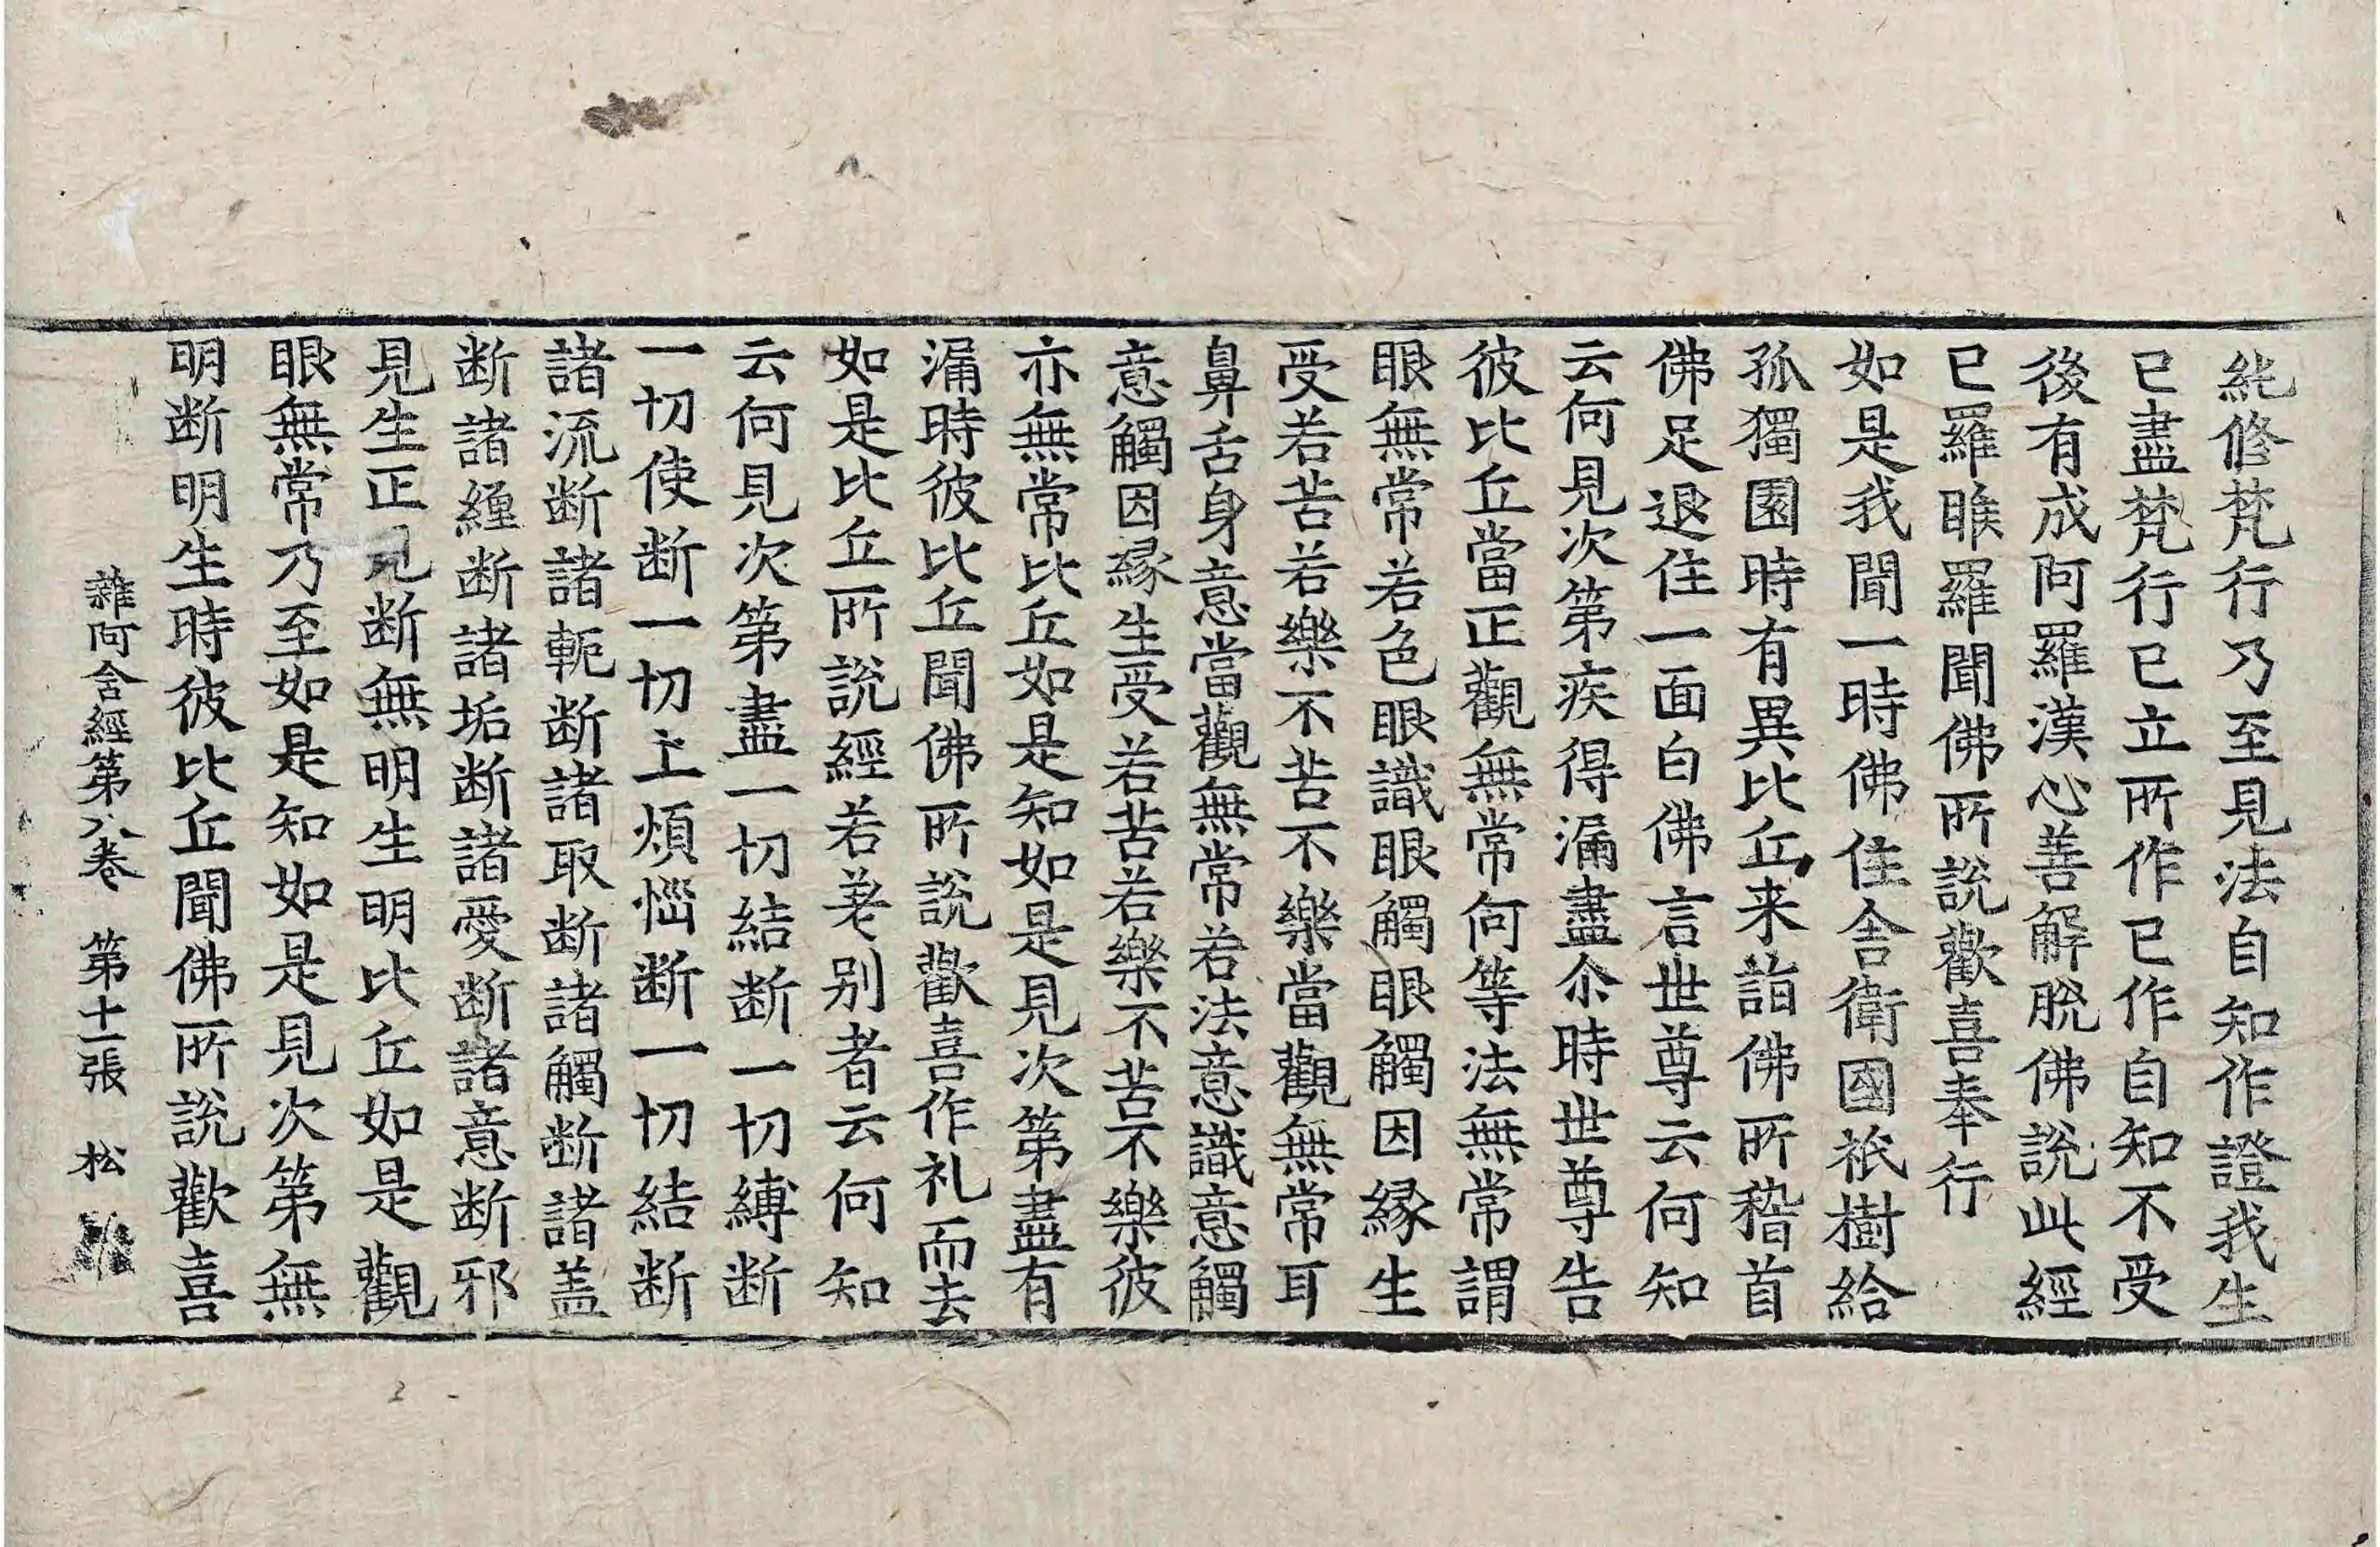 純修梵行乃至見法自知作證我生
已盡梵行已立所作已作自知不受
後有成阿羅漢心善解脫佛說此經
已羅睺羅聞佛所說歡喜奉行
如是我聞一時佛住舍衛國祇樹給
孤獨園時有異比丘来詣佛所稽首
佛足退住一面白佛言世尊云何知
云何見次第疾得漏盡尒時世尊告
彼比丘當正觀無常何等法無常謂
眼無常若色眼識眼觸眼觸因緣生
受若苦若樂不苦不樂當觀無常耳
鼻舌身意當觀無常若法意識意觸
意觸因緣生受若苦若樂不苦不樂彼
亦無常比丘如是知如是見次第盡有
漏時彼比丘聞佛所說歡喜作礼而去
如是比丘所說經若差别者云何知
云何見次第盡一切結断一切縛断
一切使断一切上煩惱断一切結断
諸流断諸軛断諸取断諸觸断諸盖
断諸纏断諸垢断諸愛断諸意断邪
見生正見断無明生明比丘如是觀
眼無常乃至如是知如是見次第無
明断明生時彼比丘聞佛所說歡喜
雜阿含經第八卷 第十一張 松